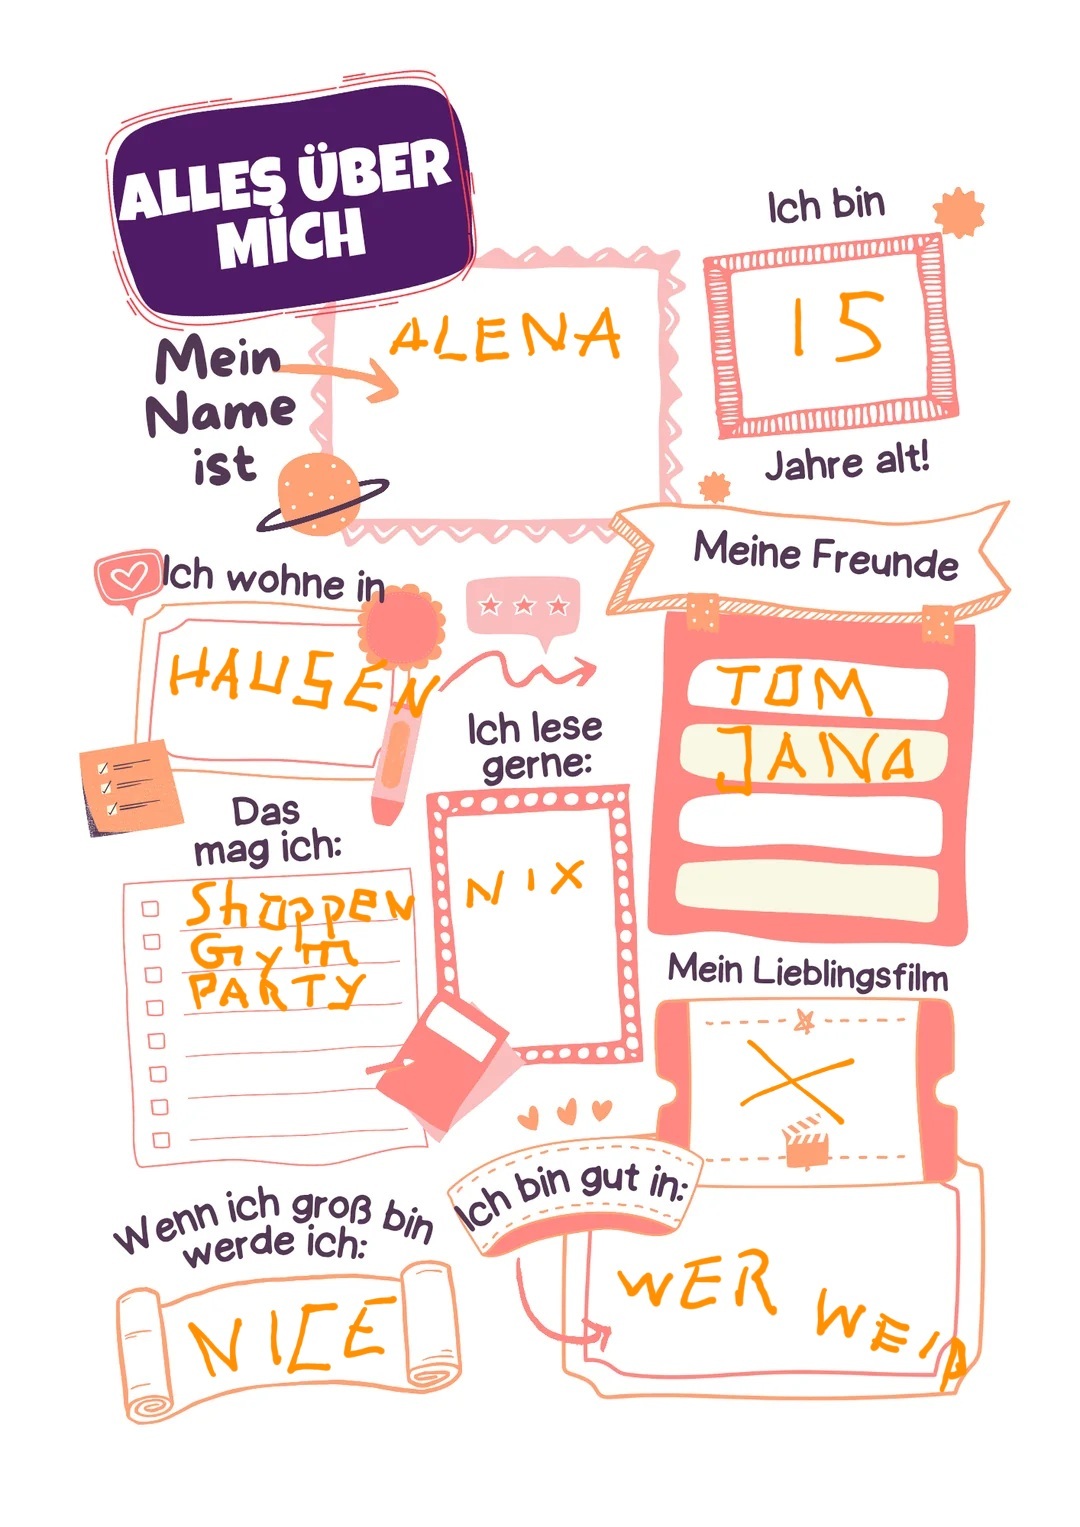 ALLES ÜBER
MICH
Mein
Name
ist
ALENA
Ich bin
15
Jahre alt!
Ich wohne in
HAUSEN
Meine Freunde
TOM
JANA
Ich lese
gerne:
NIX
Das
mag ich:
Shoppen
Gym
PARTY
Mein Lieblingsfilm
X
Wenn ich groß bin
werde ich:
NICE
Ich bin gut in:
WER WEIß